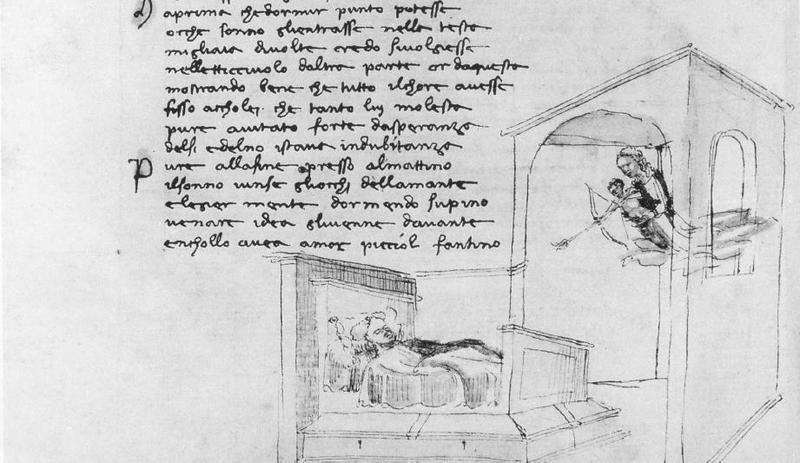 aprima chedormir punto potesse
orche sonno glientrasse nella testa
migliaia diuolte credo siuolgiesse
nelletticciuolo daltra parte or daquesta
mostrando bene che tutto ilchore auesse
fisso accholei che tanto lui molesta
pure aiutato forte dasperanza
delsi edelno istaua indubitanza
Pure allafine presso almattino
ilsonno uinse gliocchi dellamante
elegier mente dormendo supino
uenere idea gliuenne dauante
enchollo auea amor picciol fantino